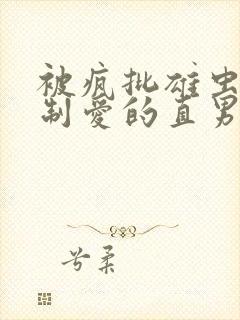 被疯批雄虫
制爱的直男
兮柔